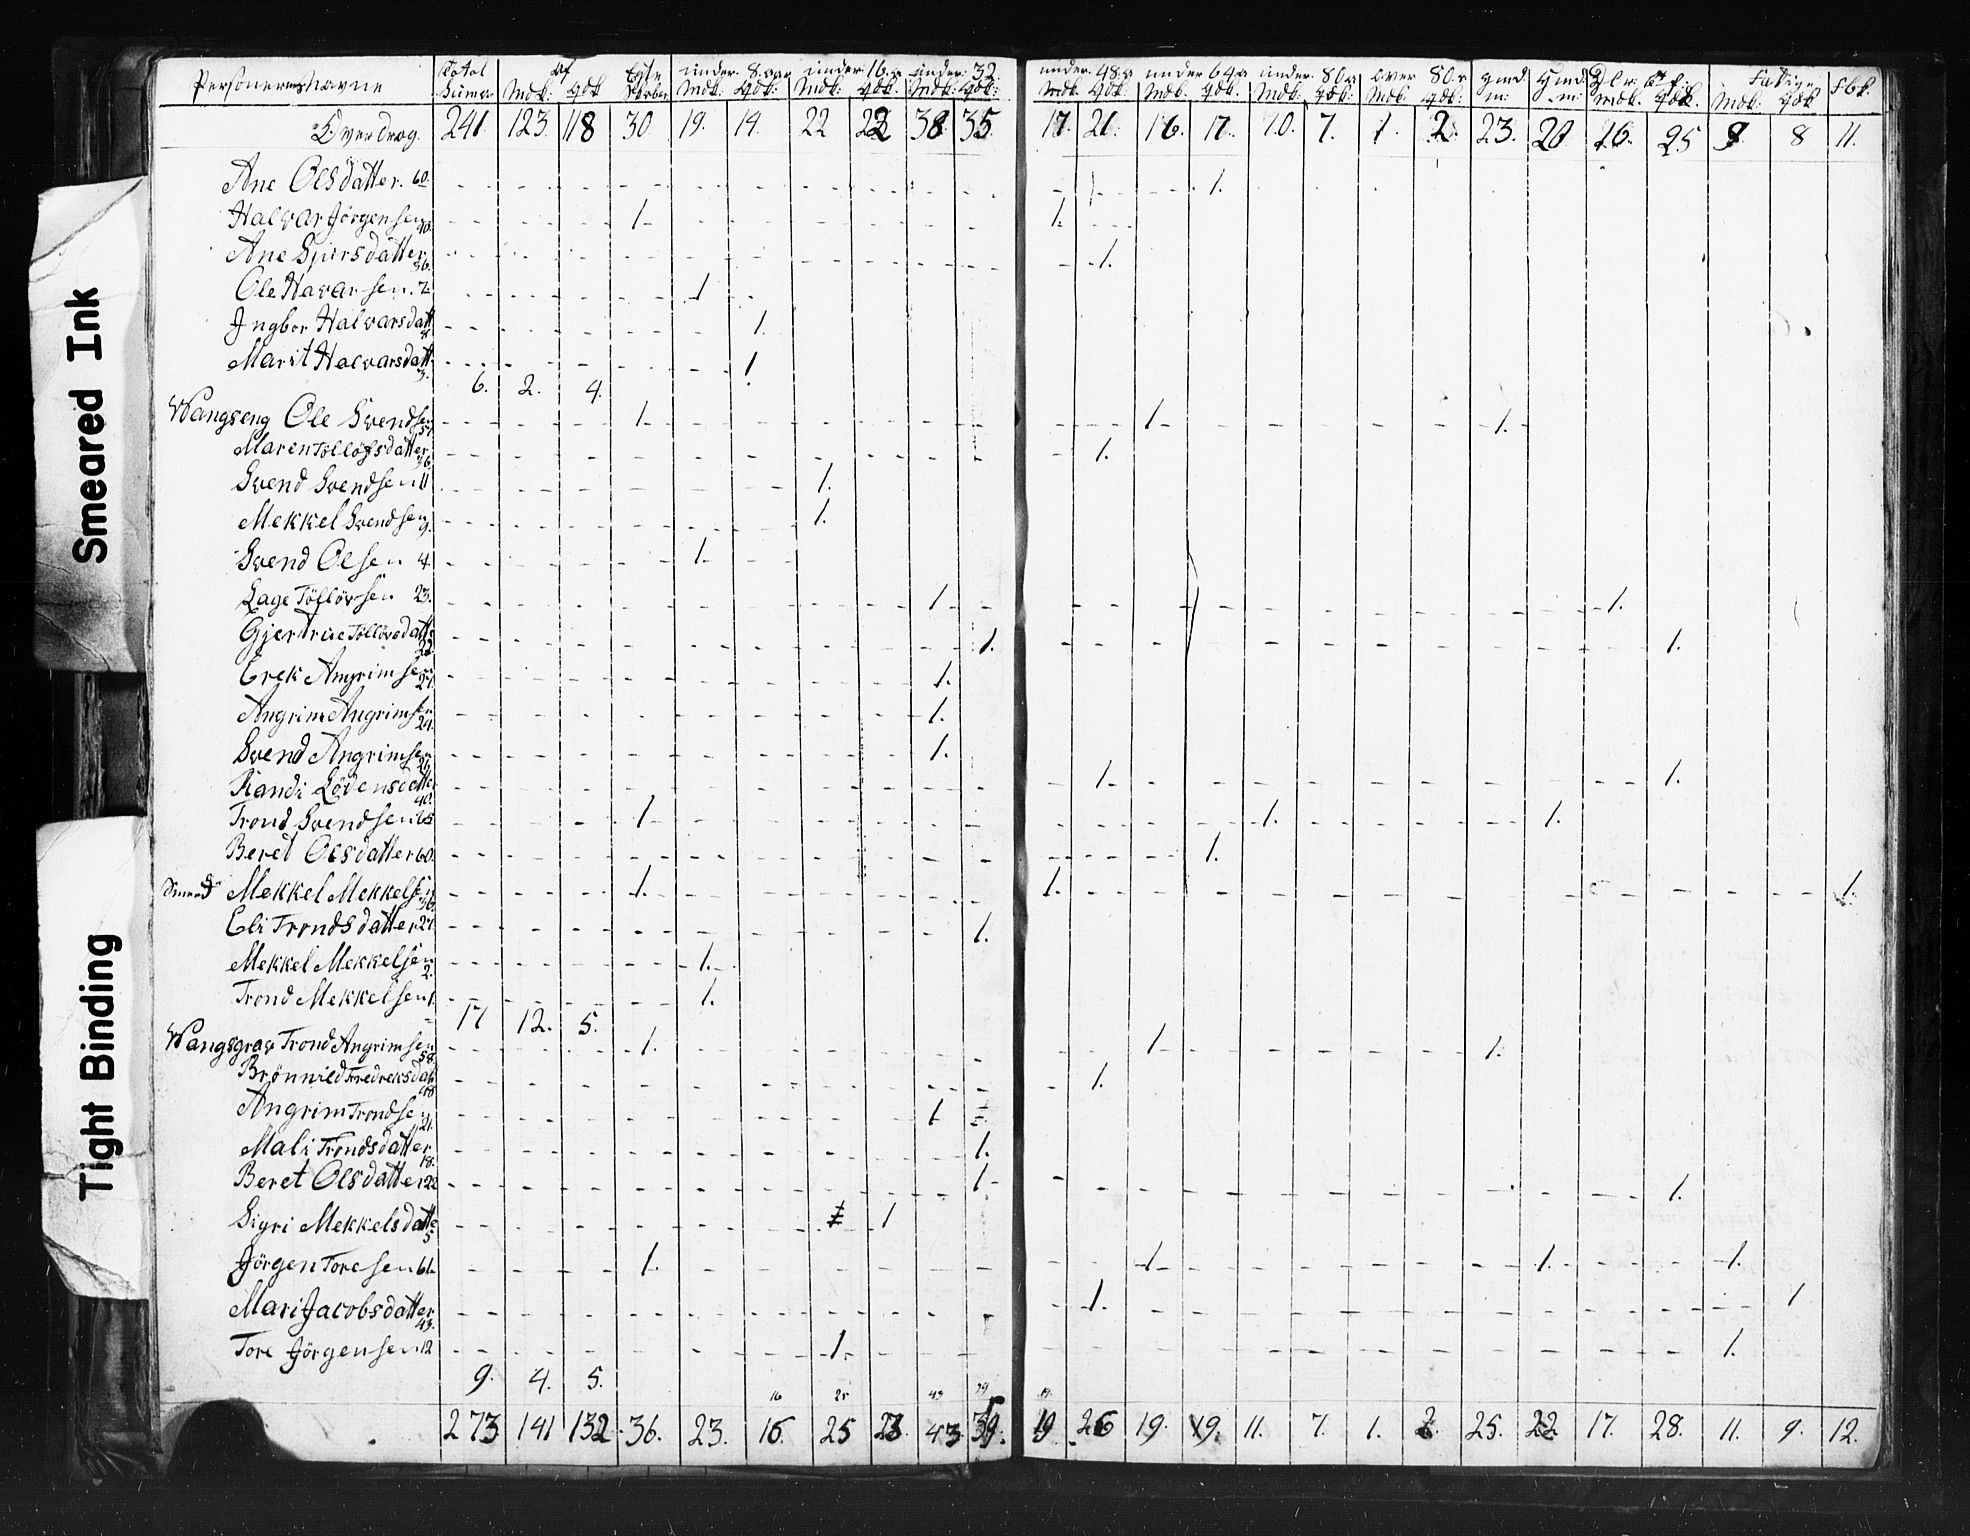 Smeared Ink
Tight Binding
Personernes Navne Total Summa Af Mdk: Qdk under 8. aar Mdk: Qdk: under 16. a Mdk: Qdk: under 32. Mdk: Qdk: under 48. a Mdk. Qdk: under 64 a Mdk. Qdk. under 80 a Mdk: Qdk: over 80. a Mdk: Qdk: Mdk. Qdk. Fattige Mdk: Qdk
Overdrag. 241 123. 118 30 19. 14. 22 23 38 35. 17. 21. 16. 17. 10. 7. 1. 2. 23. 20 16. 25 9. 8 11.
Ane Olsdatter. 60. 1.
Halvar Jörgensen 40. 1 1.
Ane Sjursdatter 36. 1.
Ole Havarsen. 7. 1
Ingbor Halvarsdatt 1.
Marit Halvarsdatt 3. 1
6. 2. 4.
Wangseng Ole Svendsen 57 1 1 1.
Maren Töllöfsdatter 36. 1.
Svend Svendsen 11 1.
Mekkel Svendsen 9. 1.
Svend Olsen 4. 1.
Lage Töllövsen 23. 1 1.
Gjertrue Töllövsdatt 22 1. 1.
Erek Angrimsen 27. 1. 
Angrim Angrimsen 24. 1.
Svend Angrimsen 1.
Randi Lödensdatter 40. 1. 1.
Trond Svendsen 65 1 1. 1.
Beret Olsdatter 60. 1.
Mekkel Mekkelsen 36. 1. 1. 1.
Eli Trondsdatter 27. 1.
Mekkel Mekkelsen 2. 1.
Trond Mekkelsen 1. 1.
17 12. 5.
Wangsgrav Trond Angrimsen 58. 1. 1 1.
Brönnild Fredreksdatt 48 1.
Angrim Trondsen 21. 1
Mali Trondsdatter 18. 1.
Beret Olsdatter 22 1 1.
Sigri Mekkelsdatt 1
Jörgen Toresen 61. 1. 1 1. 1.
Mari Jacobsdatter 43. 1. 1
Tore Jörgensen 12 1. 1.
9. 4. 5.
16 25 43 39 19.
273 141 132 36. 23. 16. 25 23. 43 39. 19 26 19. 19. 11. 7. 1. 2. 25. 22 17. 28. 11. 9. 12.